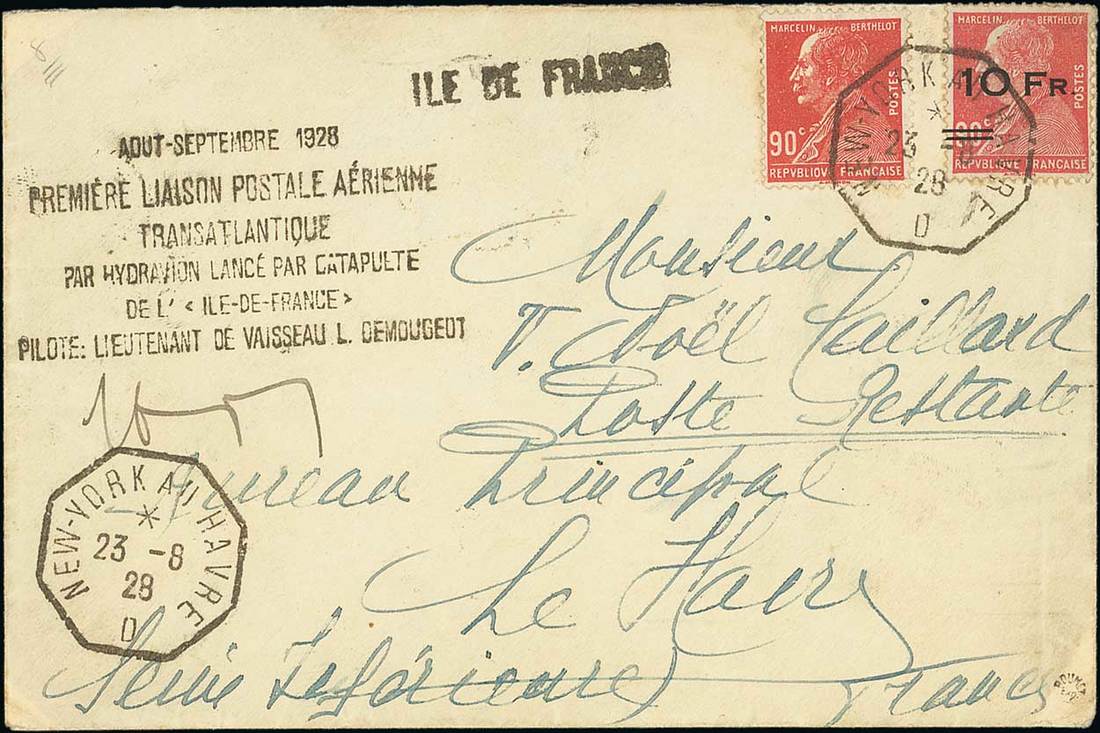 8/III
ILE DE FRANCE
MARCELIN BERTHELOT
90c
POSTES
REPVBLIQVE FRANÇAISE
MARCELIN BERTHELOT
10 FR.
90c
POSTES
REPVBLIQVE FRANÇAISE
NEW-YORK AU HAVRE
23 -8
28
D
AOUT-SEPTEMBRE 1928
PREMIÈRE LIAISON POSTALE AÉRIENNE
TRANSATLANTIQUE
PAR HYDRAVION LANCÉ PAR CATAPULTE
DE L' < ILE-DE-FRANCE>
PILOTE: LIEUTENANT DE VAISSEAU L. DEMOUGEOT
Monsieur
Noël
Poste Restante
Bureau Principal
Le Havre
Seine Inférieure
France
NEW-YORK AU HAVRE
23 -8
28
D